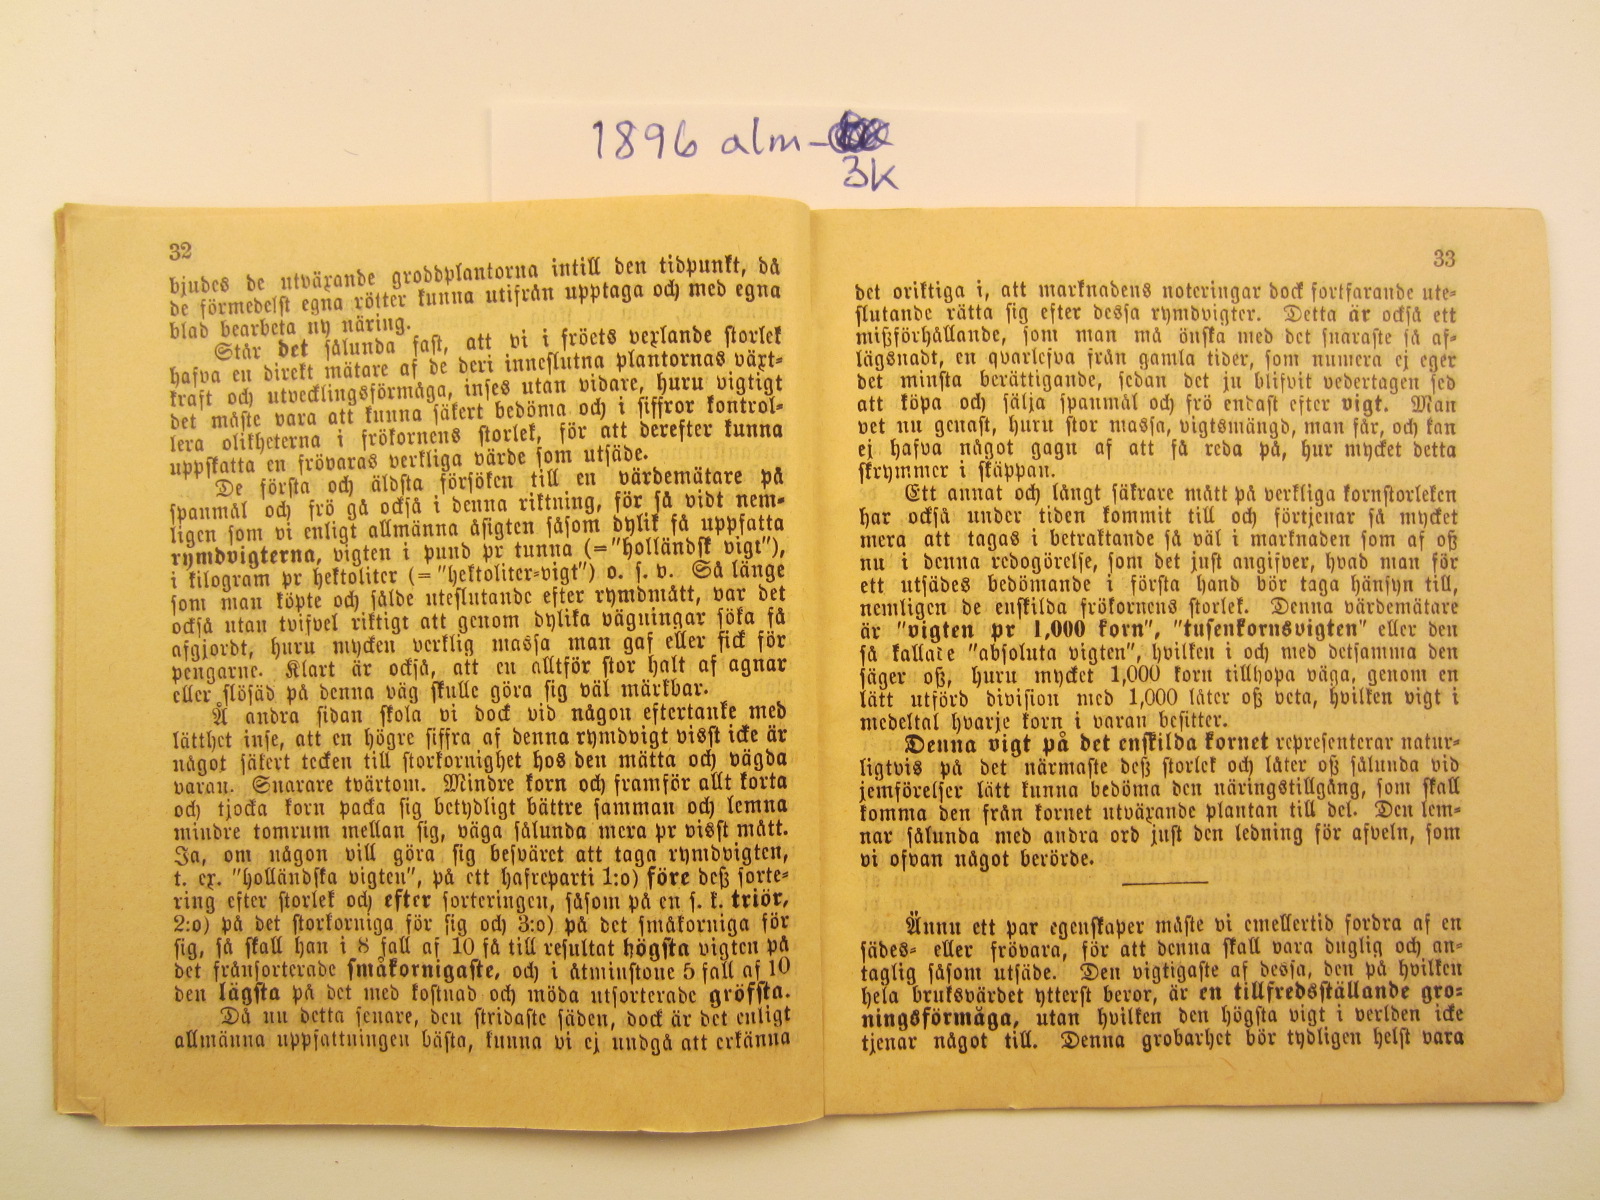 1896 alm-
3K
32
bjudes de utväxande groddplantorna intill den tidpunkt, då
de förmedelst egna rötter kunna utifrån upptaga och med egna
blad bearbeta ny näring.
Står det sålunda fast, att vi i fröets vexlande storlek
hafva en direkt mätare af de deri inneslutna plantornas växt-
kraft och utvecklingsförmåga, inses utan vidare, huru vigtigt
det måste vara att kunna säkert bedöma och i siffror kontrol-
lera olikheterna i frökornens storlek, för att derefter kunna
uppskatta en frövaras verkliga värde som utsäde.
De första och äldsta försöken till en värdemätare på
spanmål och frö gå också i denna riktning, för så vidt nem-
ligen som vi enligt allmänna åsigten såsom dylik få uppfatta
rymdvigterna, vigten i pund pr tunna (= "holländsk vigt"),
i kilogram pr hektoliter (= "hektoliter-vigt") o. s. v. Så länge
som man köpte och sålde uteslutande efter rymdmått, var det
också utan tvifvel riktigt att genom dylika vägningar söka få
afgjordt, huru mycken verklig massa man gaf eller fick för
pengarne. Klart är också, att en alltför stor halt af agnar
eller slösäd på denna väg skulle göra sig väl märkbar.
Å andra sidan skola vi dock vid någon eftertanke med
lätthet inse, att en högre siffra af denna rymdvigt visst icke är
något säkert tecken till storkornighet hos den mätta och vägda
varan. Snarare tvärtom. Mindre korn och framför allt korta
och tjocka korn packa sig betydligt bättre samman och lemna
mindre tomrum mellan sig, väga sålunda mera pr visst mått.
Ja, om någon vill göra sig besväret att taga rymdvigten,
t. ex. "holländska vigten", på ett hafreparti 1:o) före dess sorte-
ring efter storlek och efter sorteringen, såsom på en s. k. triör,
2:o) på det storkorniga för sig och 3:o) på det småkorniga för
sig, så skall han i 8 fall af 10 få till resultat högsta vigten på
det frånsorterade småkornigaste, och i åtminstone 5 fall af 10
den lägsta på det med kostnad och möda utsorterade gröfsta.
Då nu detta senare, den stridaste säden, dock är det enligt
allmänna uppfattningen bästa, kunna vi ej undgå att erkänna
33
det oriktiga i, att marknadens noteringar dock fortfarande ute-
slutande rätta sig efter dessa rymdvigter. Detta är också ett
missförhållande, som man må önska med det snaraste så af-
lägsnadt, en qvarlefva från gamla tider, som numera ej eger
det minsta berättigande, sedan det ju blifvit vedertagen sed
att köpa och sälja spanmål och frö endast efter vigt. Man
vet nu genast, huru stor massa, vigtsmängd, man får, och kan
ej hafva något gagn af att få reda på, hur mycket detta
skrymmer i skäppan.
Ett annat och långt säkrare mått på verkliga kornstorleken
har också under tiden kommit till och förtjenar så mycket
mera att tagas i betraktande så väl i marknaden som af oss
nu i denna redogörelse, som det just angifver, hvad man för
ett utsädes bedömande i första hand bör taga hänsyn till,
nemligen de enskilda frökornens storlek. Denna värdemätare
är "vigten pr 1,000 korn", "tusenkornsvigten" eller den
så kallade "absoluta vigten", hvilken i och med detsamma den
säger oss, huru mycket 1,000 korn tillhopa väga, genom en
lätt utförd division med 1,000 låter oss veta, hvilken vigt i
medeltal hvarje korn i varan besitter.
Denna vigt på det enskilda kornet representerar natur-
ligtvis på det närmaste dess storlek och låter oss sålunda vid
jemförelser lätt kunna bedöma den näringstillgång, som skall
komma den från kornet utväxande plantan till del. Den lem-
nar sålunda med andra ord just den ledning för afveln, som
vi ofvan något berörde.
Ännu ett par egenskaper måste vi emellertid fordra af en
sädes- eller frövara, för att denna skall vara duglig och an-
taglig såsom utsäde. Den vigtigaste af dessa, den på hvilken
hela bruksvärdet ytterst beror, är en tillfredsställande gro-
ningsförmåga, utan hvilken den högsta vigt i verlden icke
tjenar något till. Denna grobarhet bör tydligen helst vara